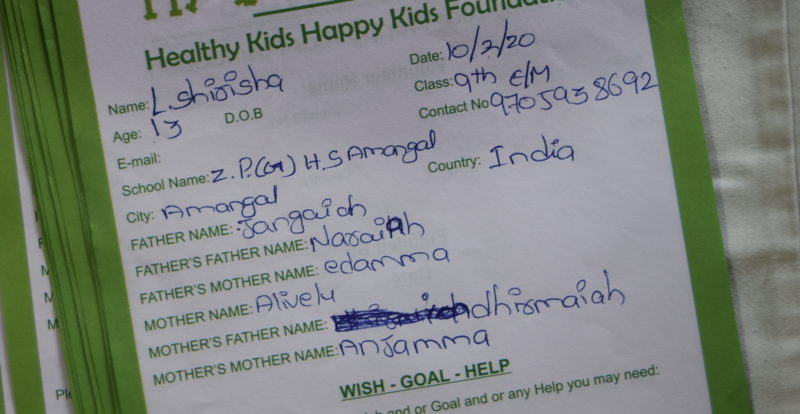 Healthy Kids Happy Kids Foundati
Date: 10/2/20
Name: L. Shirisha
Class: 9th E/M
Age: 13 D.O.B
Contact No 9705938692
E-mail:
School Name: Z.P.(G) H.S Amangal
Country: India
City: Amangal
FATHER NAME: Jangaiah
FATHER'S FATHER NAME: Narsaiah
FATHER'S MOTHER NAME: edamma
MOTHER NAME: Alivelu
MOTHER'S FATHER NAME: dhirmaiah
MOTHER'S MOTHER NAME: Anjamma
WISH - GOAL - HELP
and or Goal and or any Help you may need: